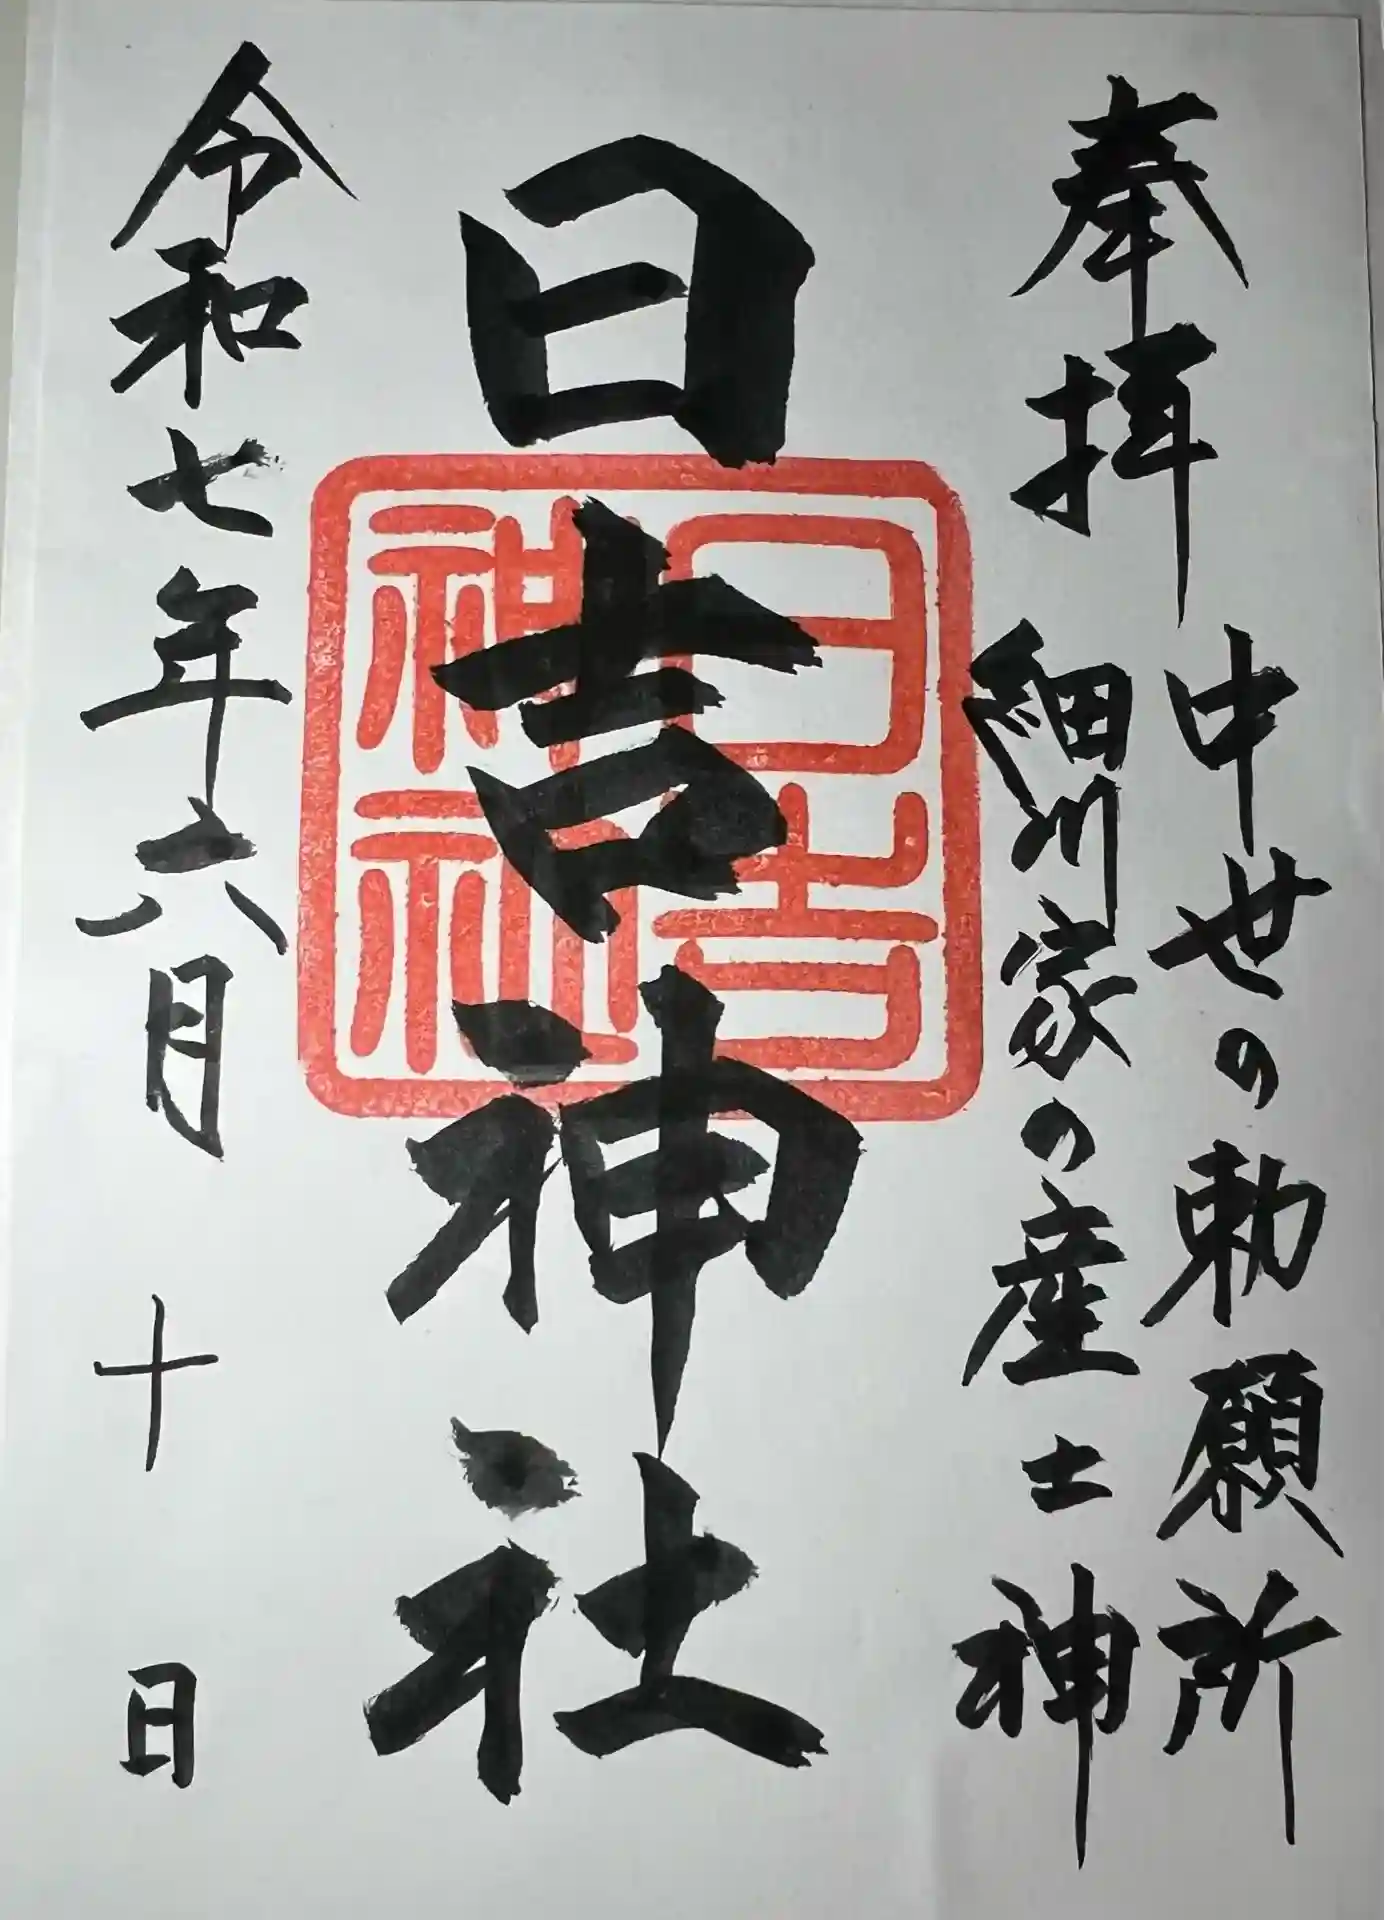 奉拝
中世の勅願所
細川家の産土神
日吉神社
日吉
神社
令和七年六月十日